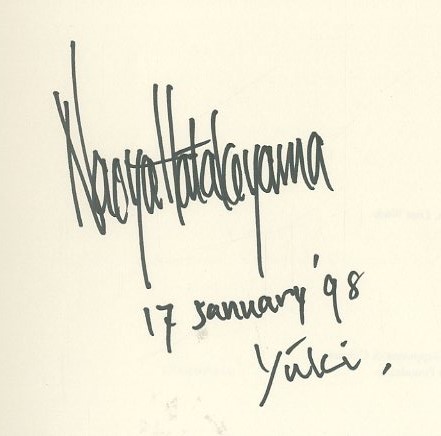 Naoya Hatakeyama
17 January '98
Yūki,